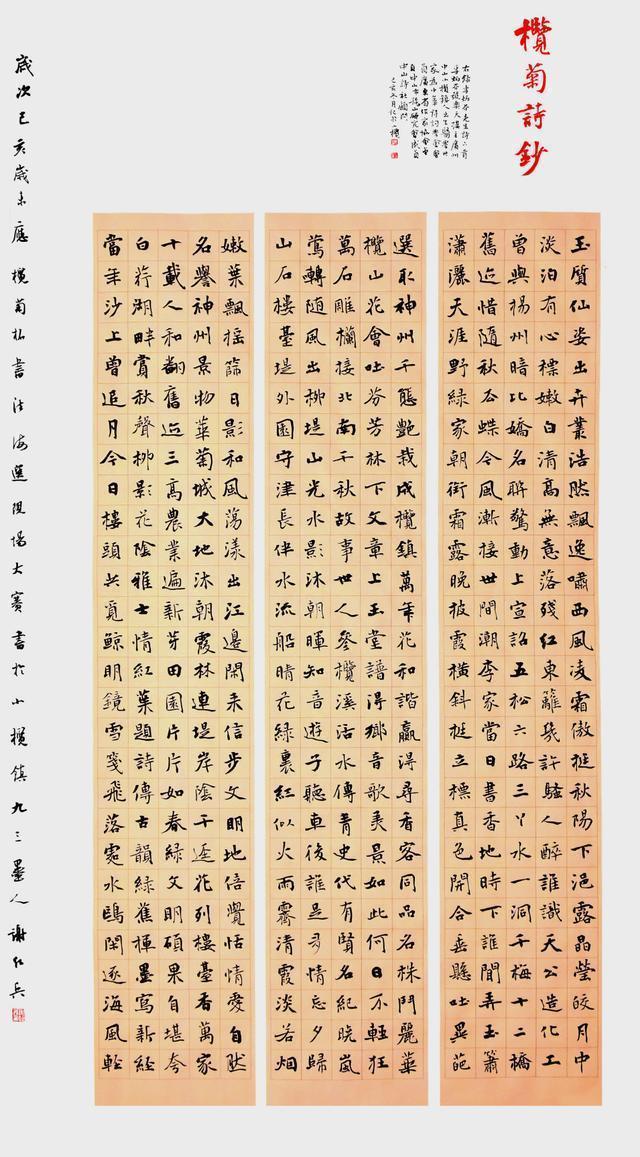 欖菊詩鈔
右錄李炳芬先生詩六首
李炳芬號樂天樓主廣州
中山小欖鎮人出生醫學世
家為中華詩詞學會會
員廣東省作家協會會
中山詩社顧問
玉質仙姿出卉叢浩然飄逸嘯西風凌霜傲挺秋陽下浥露晶瑩皎月中
淡泊有心標嫩白清高無意落殘紅東籬幾許騷人醉誰識天公造化工
曾與楊州暗比嬌名聯驚動上宣詔五松六路三丫水一洞千梅十二橋
舊迹惜隨秋去蝶今風漸接世間潮李家當日書香地時下誰聞弄玉簫
瀟灑天涯野綠家朝銜霜露晚披霞橫斜挺立標真色開合垂懸吐異葩
選取神州千態艷栽成欖鎮萬年花和諧贏得尋香客同品名株鬥麗華
欖山花會吐芬芳林下文章上玉堂譜得鄉音歌美景如此何日不輕狂
萬石雕欄接北南千秋故事世人參欖溪活水傳青史代有賢名紀晓嵐
鶯轉随風出柳堤山光水影沐朝暉知音遊子聽車後誰是多情忘夕歸
山石樓臺堤外園守津長伴水流船晴花綠裏紅似火雨霽清霞淡若烟
嫩葉飄搖篩日影和風蕩漾出江邊閑来信步文明地倍覺怡情愛自然
名譽神州景物華菊城大地沐朝霞林連堤岸陰千逕花列樓臺香萬家
十載人和翻舊迹三高農業遍新芽田園片片如春綠文明碩果自堪夸
白荇湖畔賞秋聲柳影花陰雅士情紅葉題詩傳古韻綠蕉揮墨寫新經
當年沙上曾追月今日樓頭共覓鯨明鏡雪箋飛落處水鷗閑逐海風輕
歲次己亥歲末應欖菊杯書法海選現場大賽書於小欖鎮九三墨人謝仁兵